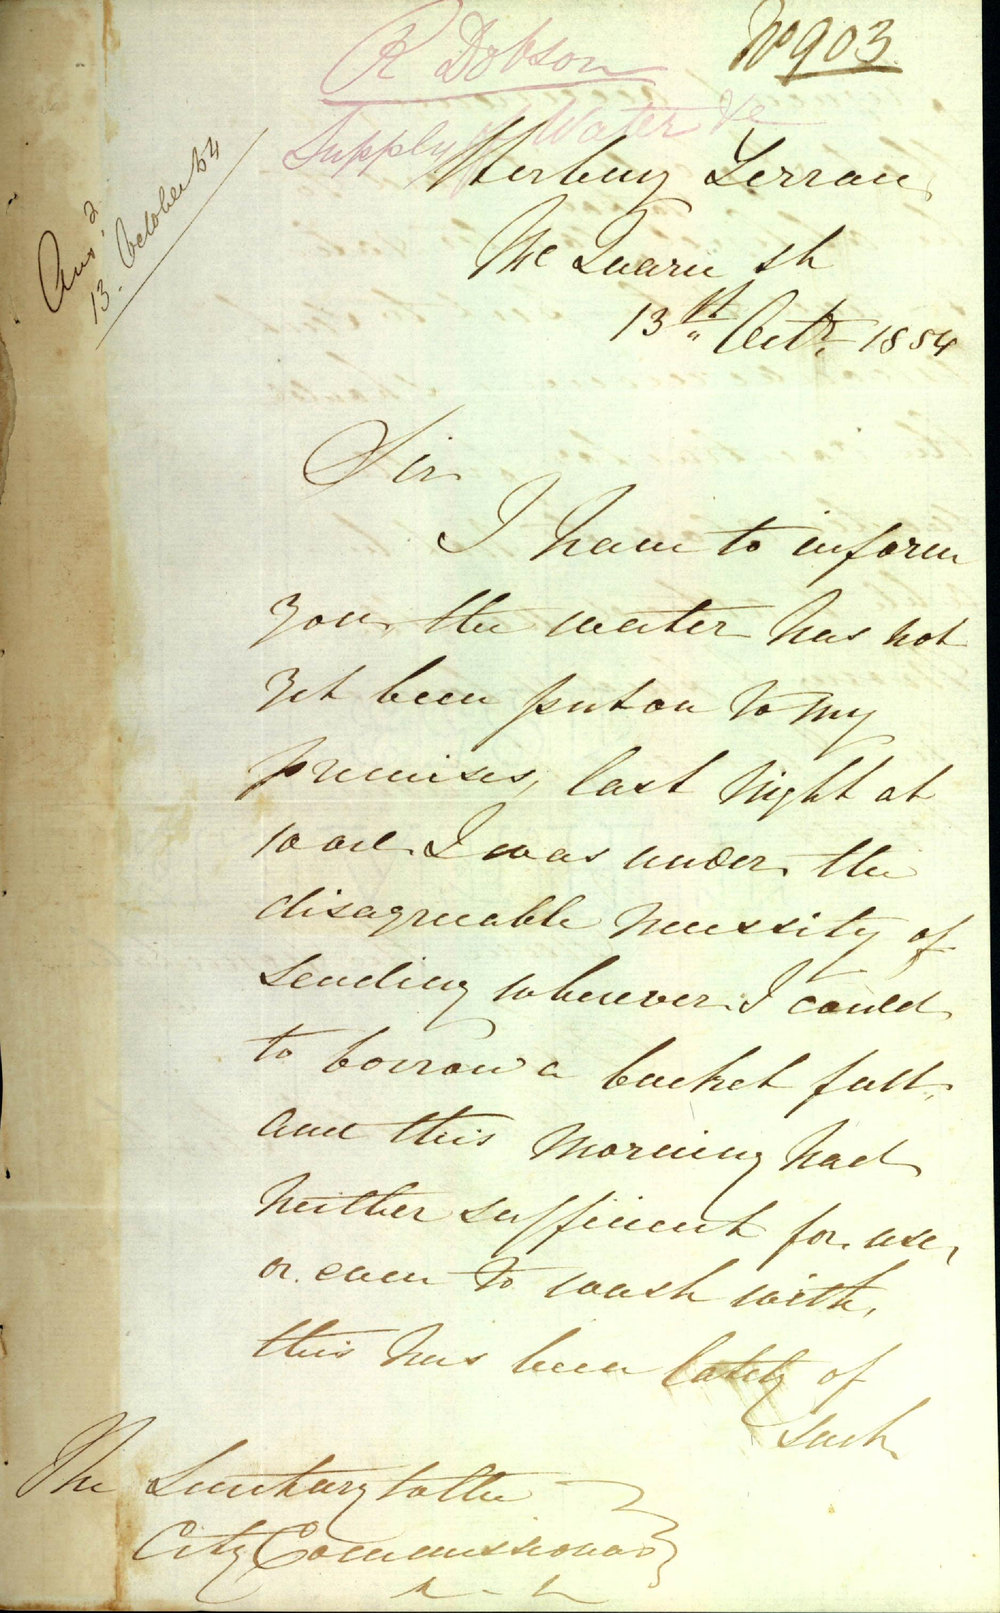 No 903
R Dobson
Supply of Water &c
Ansd
13. October 54
Terrace
McQuarie St
13th Octr 1854
Sir
I have to inform
you, the water has not
yet been put on to my
premises, last night at
10 oclk. I was under the
disagreeable necessity of
sending wherever I could
to borrow a bucket full,
and this morning had
neither sufficient for use,
or even to wash with,
this has been lately of
such
The Secretary to the
City Commissioners